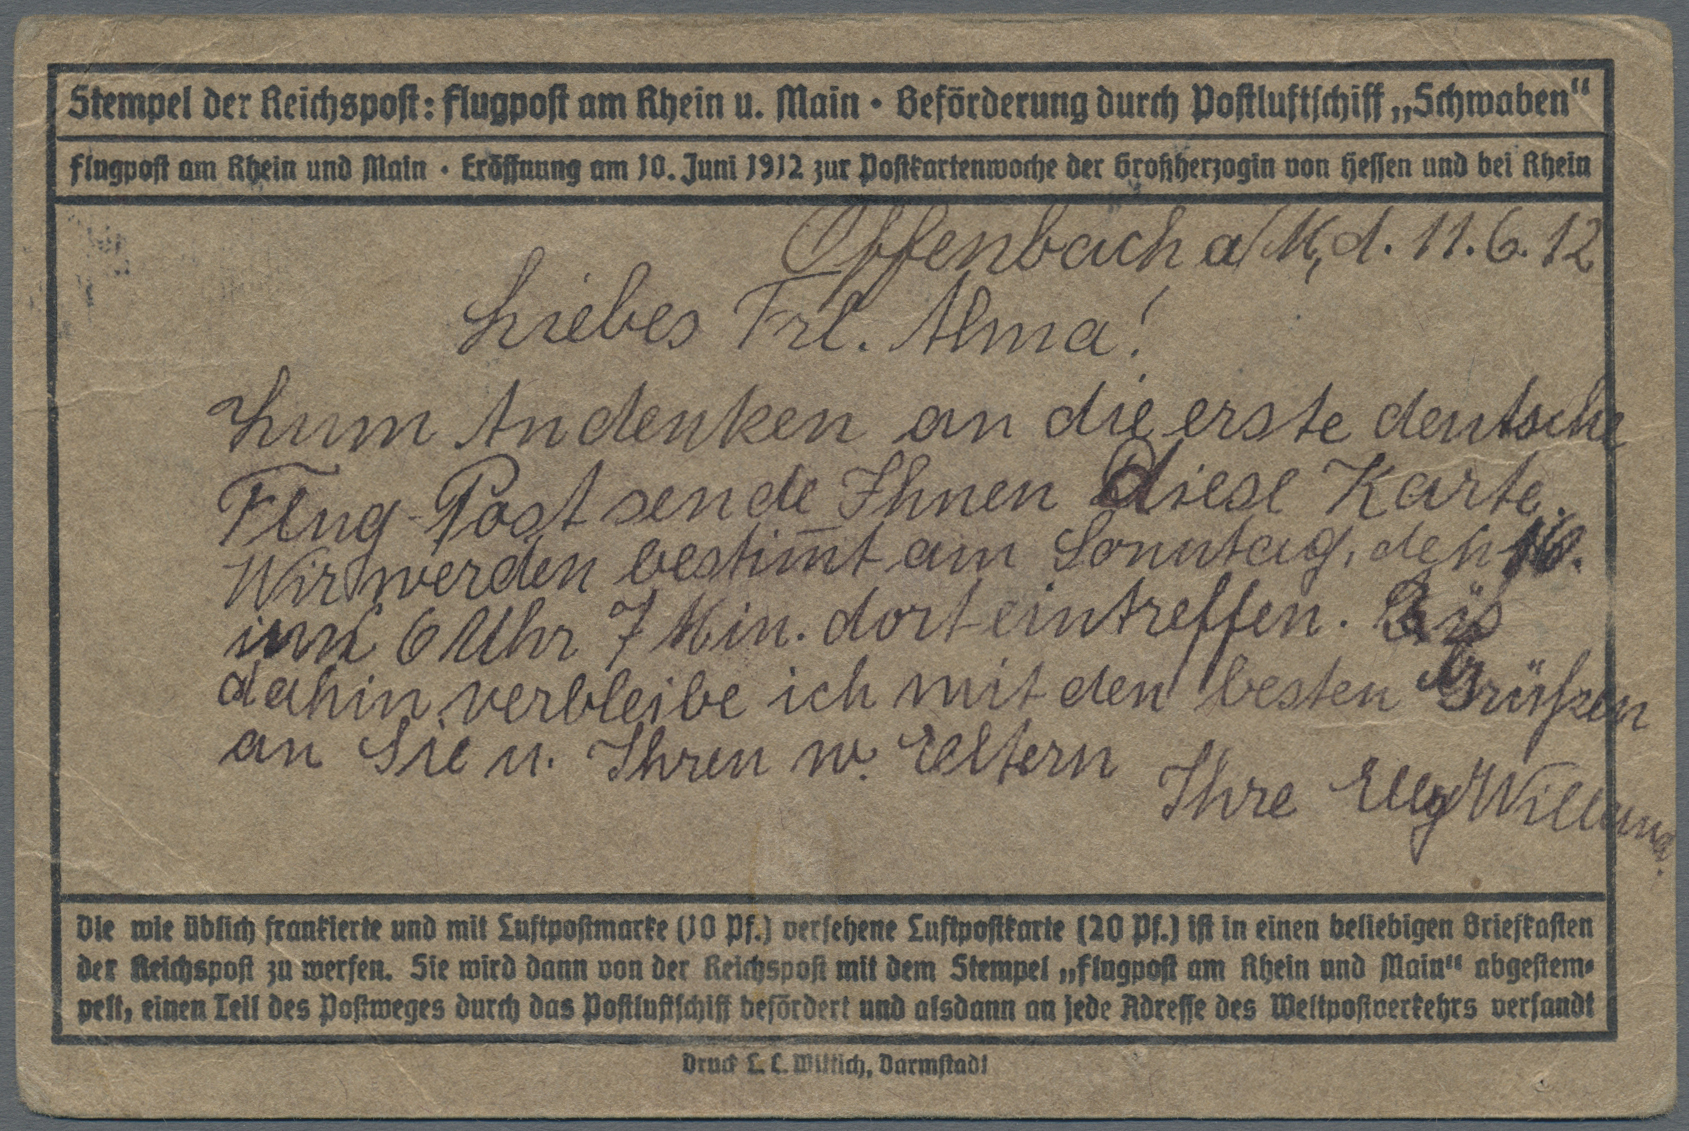 Stempel der Reichspost: Flugpost am Rhein u. Main • Beförderung durch Postluftschiff „Schwaben“
Flugpost am Rhein und Main • Eröffnung am 10. Juni 1912 zur Postkartenwoche der Großherzogin von Hessen und bei Rhein
Offenbach a/M, d. 11.6.12
Liebes Frl. Alma!
Zum Andenken an die erste deutsche
Flug-Post sende Ihnen diese Karte.
Wir werden bestim̅t am Sonntag, den 16.
um 6 Uhr 7 Min. dort eintreffen. Bis
dahin verbleibe ich mit den besten Grüßen
an Sie u. Ihren w. Eltern
Ihre Elly
Die wie üblich frankierte und mit Luftpostmarke (10 Pf.) versehene Luftpostkarte (20 Pf.) ist in einen beliebigen Briefkasten
der Reichspost zu werfen. Sie wird dann von der Reichspost mit dem Stempel „Flugpost am Rhein und Main“ abgestem-
pelt, einen Teil des Postweges durch das Postluftschiff befördert und alsdann an jede Adresse des Weltpostverkehrs versandt
Druck L. C. Wittich, Darmstadt